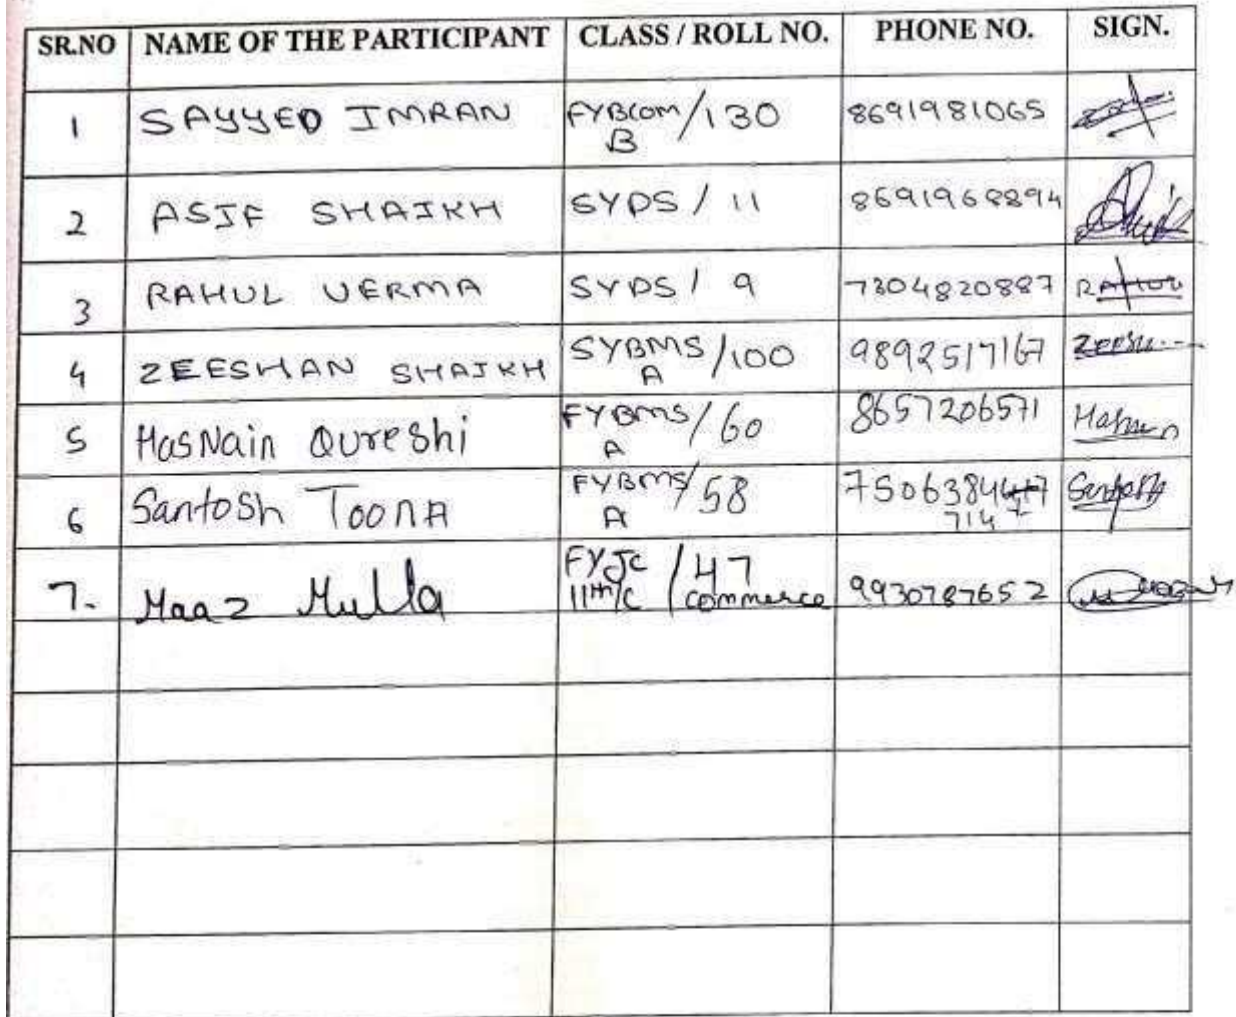 SR.NO NAME OF THE PARTICIPANT CLASS / ROLL NO. PHONE NO. SIGN.
1 SAYYED IMRAN FYBCOM/130 8691981065
B
2 ASIF SHAIKH SYDS / 11 8691968894
3 RAHUL VERMA SYDS / 9 7304820887 RAHUL
4 ZEESHAN SHAIKH SYBMS /100 9892517167 Zeesh
A
5 HasNain Qureshi FYBMS/60 8657206571
A
6 Santosh ToonA FYBMS/58 75063844 Santosh
A 714
7. Maaz Mulla FYJC /47 9930787652
11th/C commerce